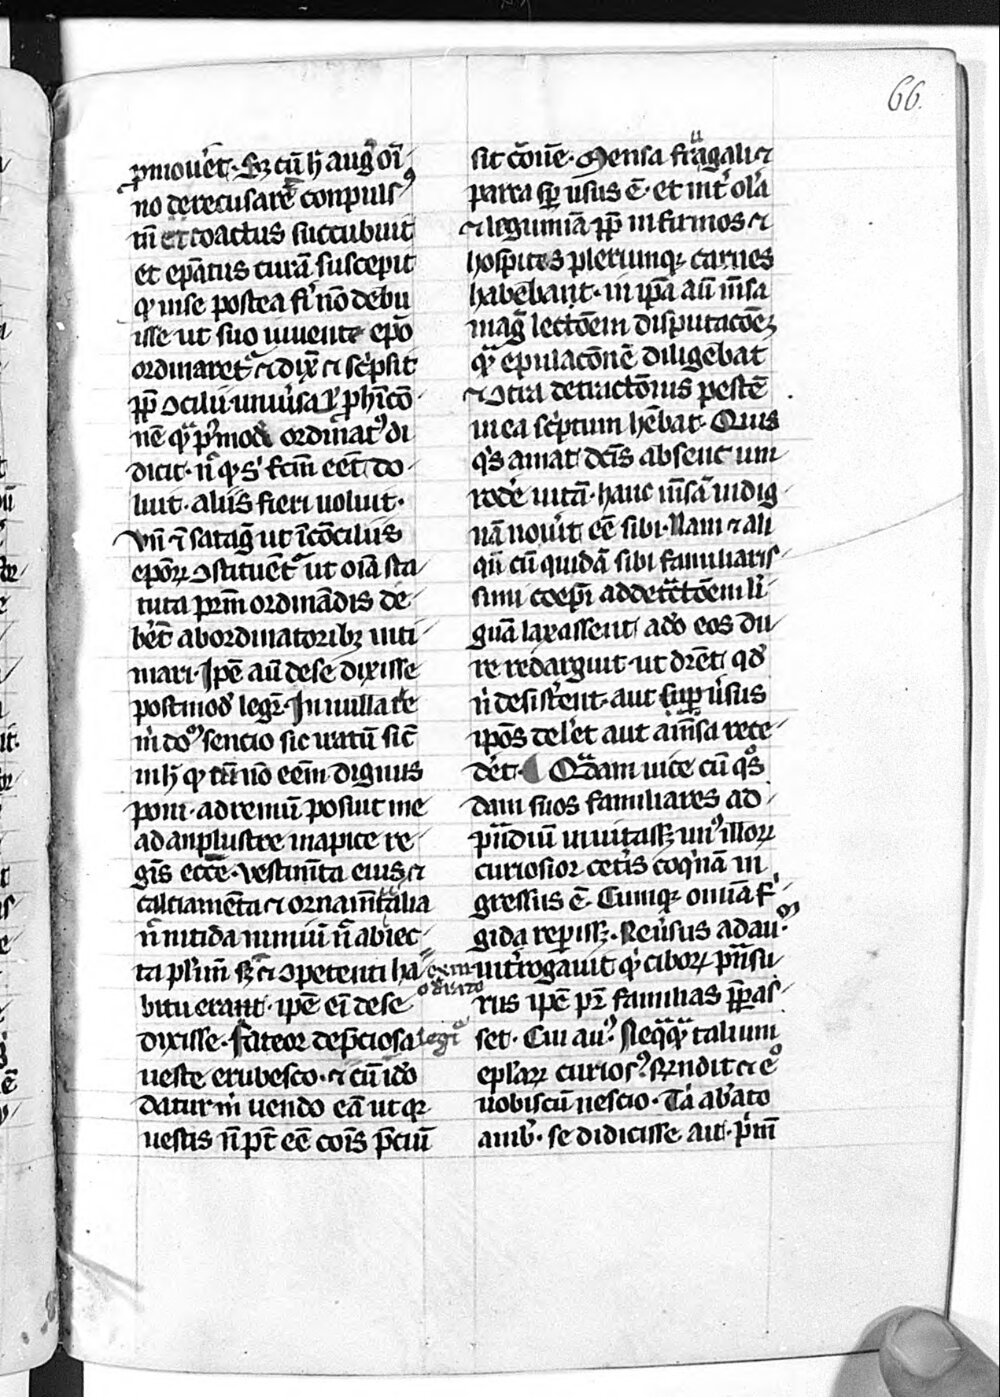 66.
ꝓmou̾et. Sꝫ cū h̄ augͦ oī
no de recusaret conpulsꝰ
tn̄ et coactus succubuit
et ep̄atus curā suscepit
qͥ in se postea fi̾ nō debu
isse ut suo uiuente ep̄o
ordinaret᷑ ⁊ dix̄ ⁊ sc̾psit
ꝓp̄ ↄcilii uniu̾sał ꝓhi̅cō
nē
dicit. nͣ qͥ sͥ fcm̄ eēt do
luit. aliis fieri uoluit.
Vn̄ ⁊ satag̅ ut ī cōciliis
ep̄oꝝ ↄstitueret᷑ ut oīa sta
tuta pr̄m ordinādis de
be̾nt ab ordinatoribꝫ inti
mari. Ip̄e aū de se dixisse
postmod̾ legr̄. In nulla re
m̄ doꝰ sencio sic iratū sic̄
in h̄ qͥ cū nō eēm dignus
poni. ad remū posuit me
ad anplustre in apice re
gīs ecc̄e. Vestim̄ta eius ⁊
calciamēta ⁊ ornam̄talia
n̄ nitida nimiū n̄ abiec
ta plim̄ sꝫ ⁊ ↄpetenti ha
bitu erant. ipē eī de se
dixisse. fateor de p̄ciosa legr̄
ueste erubesco. ⁊ cū id̾o
datur m̄ uendo eā ut qn̄
uestis n̄ pt̄ eē cōis p̄ciū
sit cōue̅. Mensa frugali ⁊
parca sp̄ usus ē. et int̾ ol̾a
⁊ legumīa ꝓp̄ infirmos ⁊
hospites plerunqꝫ carnes
habebant. in ip̄a aū m̄sa
mag̅ lectōem ł disputacōeꝫ
qͣ epulacōnē diligebat
⁊ ↄtra detractōnis pestē
in ea sc̾ptum he̅bat. Quis
qͥs amat dc̄is absentum
rode̾ uitā. hanc m̄sā indig
nā nou̾it eē sibi. Nam ⁊ ali
qn̄ cū quidā sibi familiaris
simi coep̄i ad det̾ctōem li
guā laxassent adͦ eos du
re redarguit. ut dr̄et qd̾
nͥ desist̾ent. aut sup̄ u̾sus
ip̄os del̾et aut a m̄sa rece
de̾t. Qͣdam uice cū qͦs
dam suos familiares ad
p̄ndiū inuitassꝫ unꝰ illoꝝ
curiosior cet̾is coqͥnā in
gressus ē. Cumqꝫ omnia f̾
gida rep̄issꝫ. Reu̾sus ad auꝰ
int̾rogauit qͥ ciboꝝ p̄nsu
rus ip̄e pr̄ familias p̄pas
set. Cui auꝰ. Neqͣqͣ talium
epl̾aꝝ curiosꝰ rn̄dit ⁊ eͦ
uobiscū nescio. Tͣ ab̾ato
amb̾. se didicisse ait. pͥm